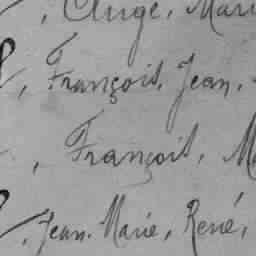 , Ange, Mari
, François, Jean,
, François, M
, Jean-Marie, René,